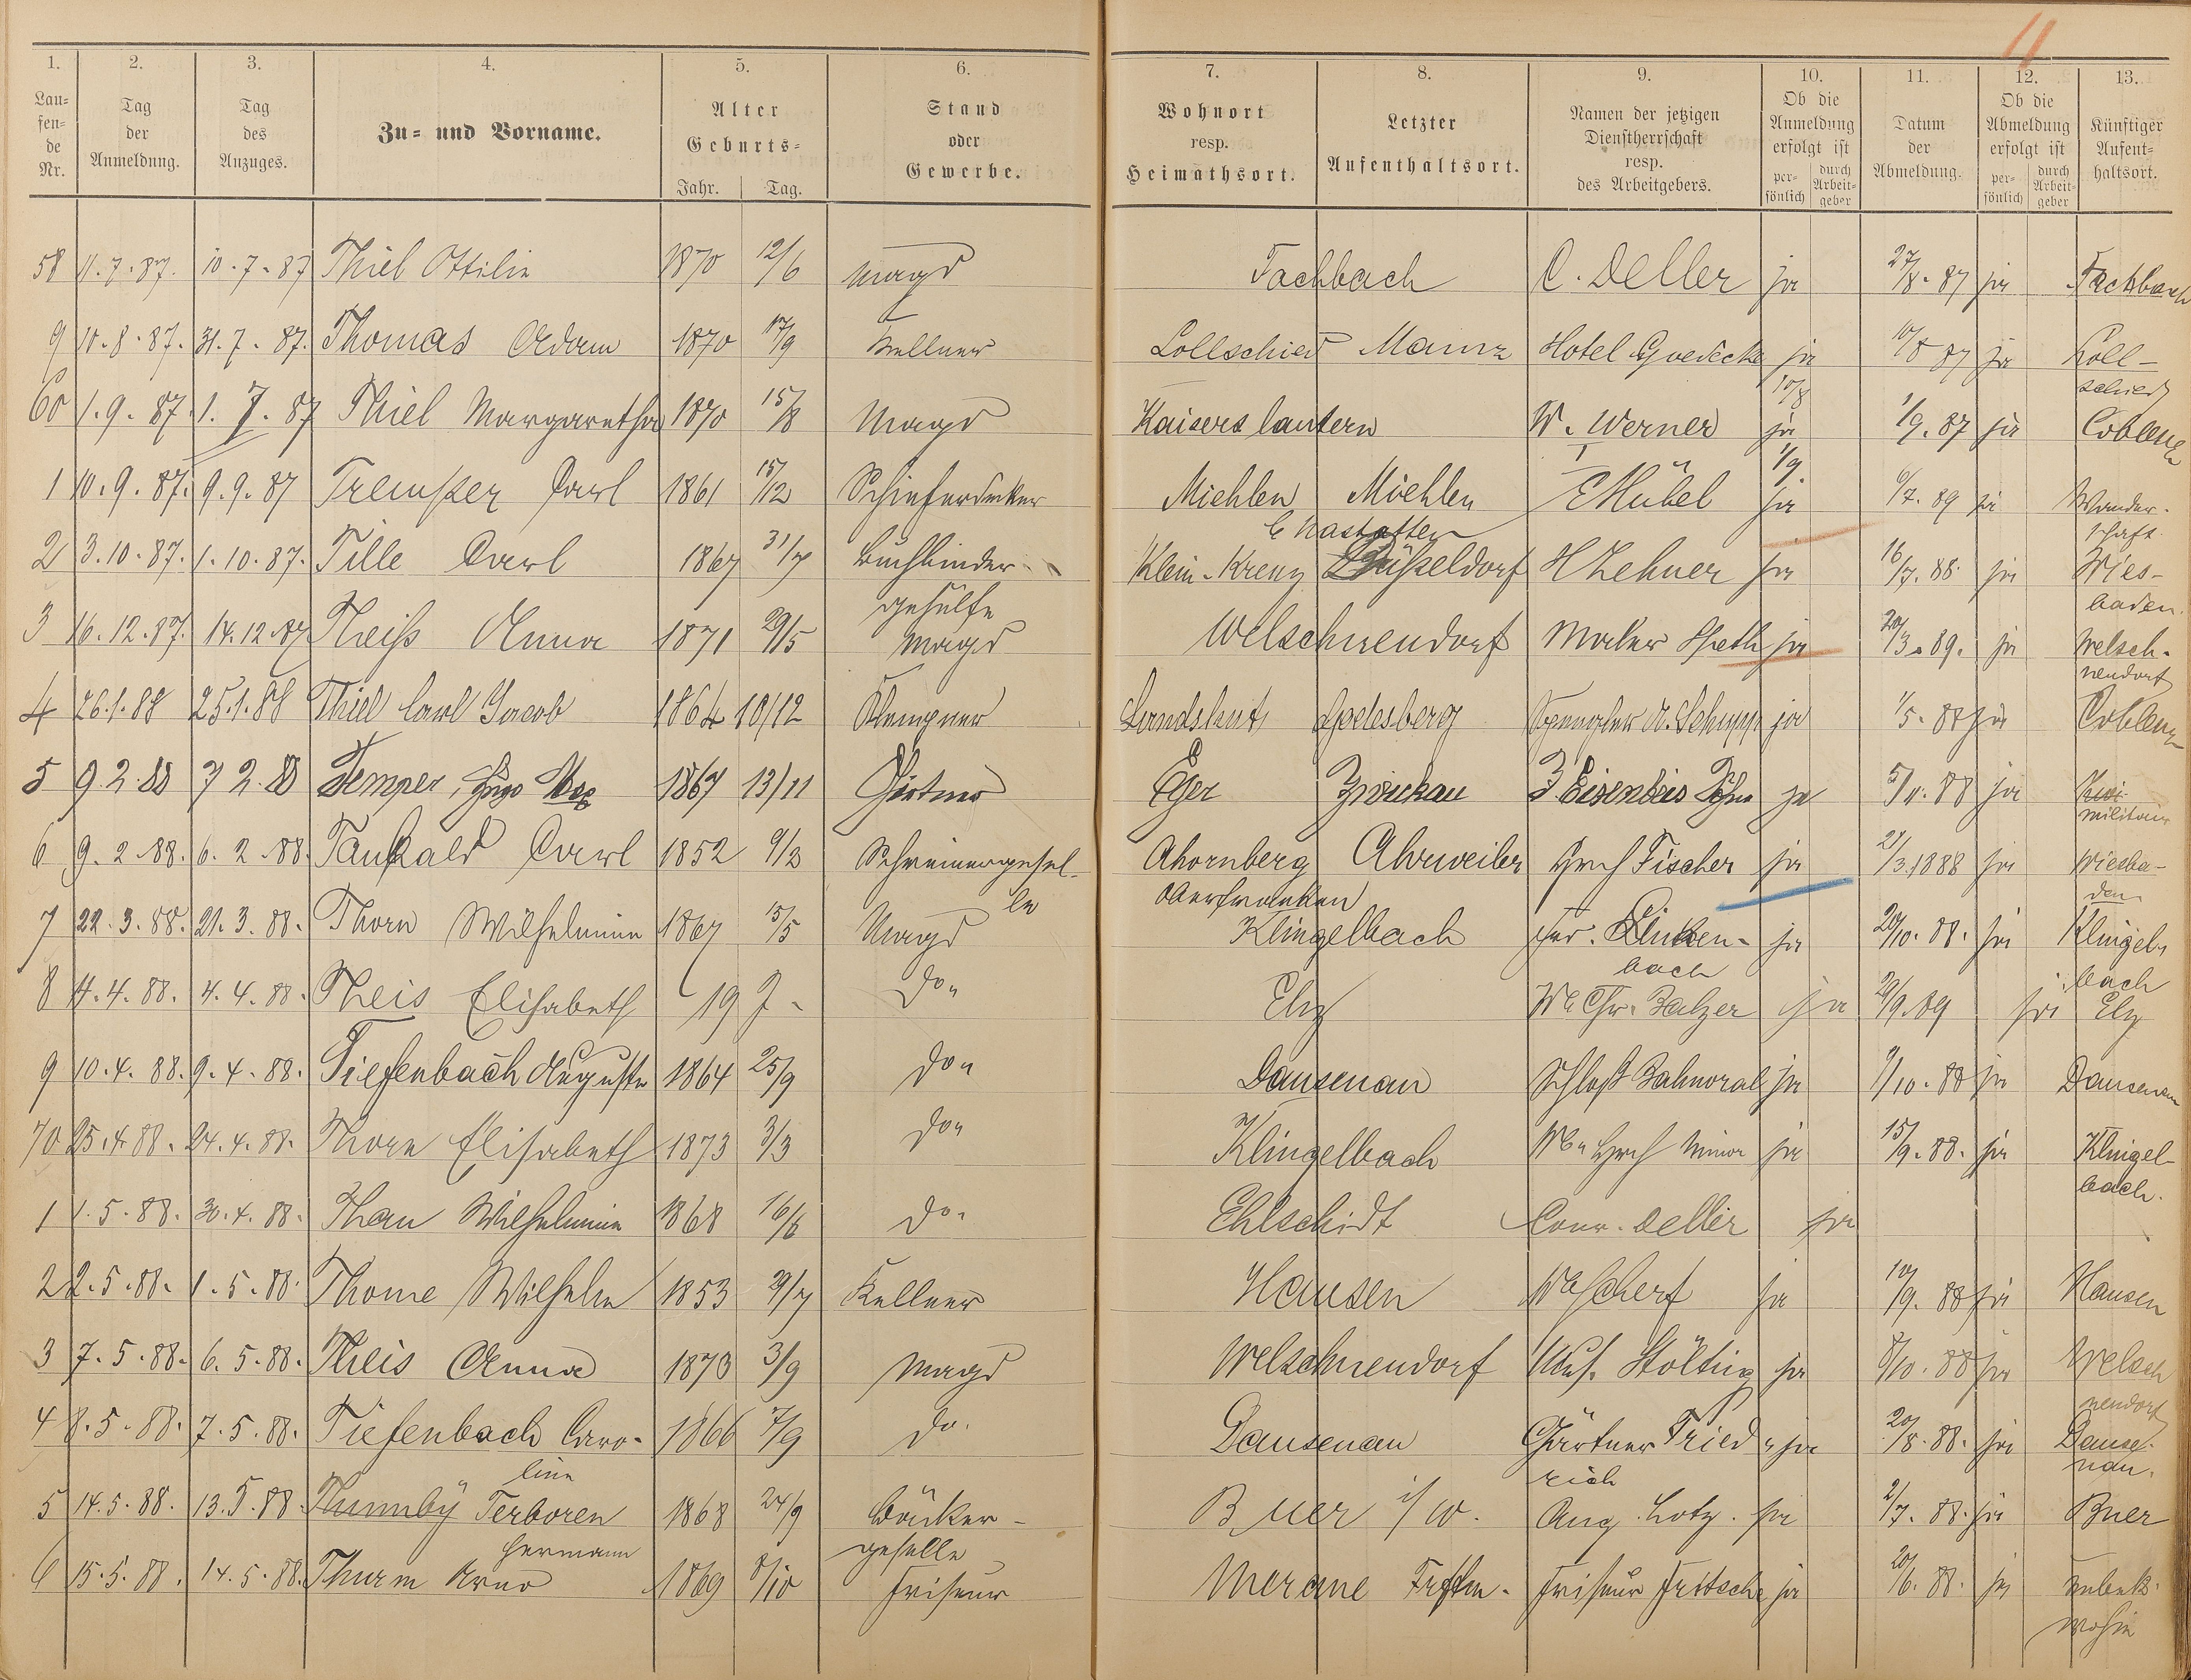 11
1. 2. 3. 4. 5. 6. 7. 8. 9. 10. 11. 12. 13.
Lau-fen-de Nr. | Tag der Anmeldung. | Tag des Anzuges. | Zu- und Vorname. | Alter Geburts- Jahr. Tag. | Stand oder Gewerbe. | Wohnort resp. Heimathsort. | Letzter Aufenthaltsort. | Namen der jetzigen Dienstherrschaft resp. des Arbeitgebers. | Ob die Anmeldung erfolgt ist per-sönlich durch Arbeit-geber | Datum der Abmeldung. | Ob die Abmeldung erfolgt ist per-sönlich durch Arbeit-geber | Künftiger Aufent-haltsort.
58 11.7.87. 10.7.87 Thiel Ottilie 1870 12/6 Magd Fachbach C. Deller ja 27/8.87 ja Fachbach
9 10.8.87. 31.7.87. Thomas Adam 1870 17/9 Kellner Lollschied Mainz Hotel Goedecke ja 10/8 87 ja Loll-
schied
60 1.9.87. 1.7.87 Thiel Margaretha 1870 15/8 Magd Kaiserslautern W. Werner 17/8 ja 1/9.87 ja Coblenz
1 10.9.87. 9.9.87 Tremper Carl 1861 15/12 Schieferdecker Miehlen Miehlen E Hübel 1/9 ja 6/7.89 ja Wander-
schaft
b Nastätten
2 3.10.87. 1.10.87. Tille Carl 1867 31/7 Buchbinder- Klein-Kreuz Düsseldorf H Zehner ja 16/7.88. ja Wies-
gehülfe baden.
3 16.12.87. 14.12.87 Theiß Anna 1871 29/5 Magd Welschnendorf Maler Speth ja 20/3.89. ja Welsch-
nendorf
4 26.1.88 25.1.88 Thiel Carl Jacob 1864 10/12 Klempner Landshut Godesberg Spengler A. Schupp ja 1/5.88 ja Coblenz
5 9.2.88 7 2.88 Temper, Hugo Max 1867 13/11 Gärtner Eger Zwickau J Eisenbeis Söhne ja 5/11.88 ja
militair
6 9.2.88. 6.2.88. Tankald Carl 1852 9/3 Schreinergesel- Ahornberg Ahrweiler Hrch Fischer ja 27/3.1888 ja Wiesba-
le Oberfranken den
7 22.3.88. 21.3.88. Thorn Wilhelmine 1867 15/5 Magd Klingelbach Fr. Linken- ja 20/10.88. ja Klingel-
bach bach
8 4.4.88. 4.4.88. Theis Elisabeth 19 J. do Elz Ww Chr. Balzer ja 29/9.89 ja Elz
9 10.4.88. 9.4.88. Tiefenbach Auguste 1864 25/9 do Dausenau Schloß Balmoral ja 9/10.88 ja Dausenau
70 25.4.88. 24.4.88. Thorn Elisabeth 1873 3/3 do Klingelbach Ww Hrch Minor ja 15/9.88. ja Klingel-
bach.
1 1.5.88. 30.4.88. Thau Wilhelmine 1868 16/6 do. Ehlscheidt Conr. Deller ja
2 2.5.88. 1.5.88. Thome Wilhelm 1853 29/7 Kellner Hausen W Scherf ja 10/9.88 ja Hausen
3 7.5.88. 6.5.88. Theis Anna 1873 3/9 Magd Welschnendorf Stölting ja 8/10.88 ja Welsch
nendorf
4 8.5.88. 7.5.88. Tiefenbach Caro- 1866 7/9 do. Dausenau Gärtner Fried- ja 20/8.88. ja Dause-
line rich nau.
5 14.5.88. 13.5.88. Terboren 1868 24/9 Bäcker- Buer i/W. Aug. Lotz. ja 2/7.88. ja Buer
Hermann geselle
6 15.5.88. 14.5.88. Thurm Arno 1869 8/10 Friseur Merane Friseur Fritsche ja 20/6.88. ja unbek.
wohin